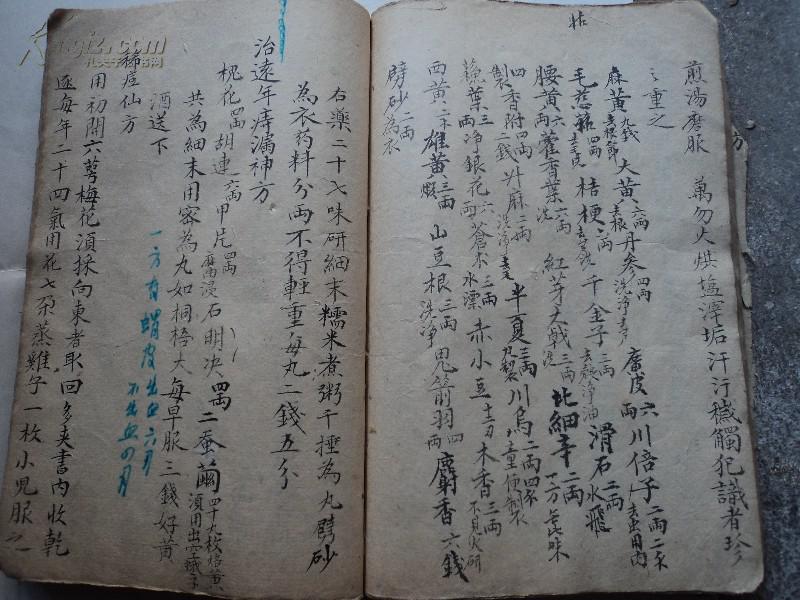 煎湯磨服 萬勿火烘塩滓垢汗污穢觸犯識者珍
之重之
麻黃九錢去根節 大黃六兩去根 丹參四兩洗淨去戶 廣皮六兩 川倍子二兩二錢去虫用肉
毛慈菇四兩去毛 桔梗六兩 千金子三兩去殼淨油 滑石二兩水飛
腰黃六兩 藿香葉六兩洗 紅芽大戟三兩 北細辛二兩一方無此味
製香附四兩二錢 升麻二兩洗淨去毛 半夏三兩 川烏二兩四錢童便製
蘇葉三兩 淨銀花六兩 蒼朮三兩水漂 赤小豆十二刃 木香三兩不見火研
西黃二錢 雄黃三兩 山豆根三兩洗淨 鬼箭羽四兩 麝香六錢
劈砂二兩為衣
右藥二十七味研細末糯米煮粥千搥為丸劈砂
為衣药料分兩不得輕重每丸二錢五分
治遠年痔漏神方
槐花四兩 胡連六兩 甲片四兩 石明决四兩 二蚕繭四十九枚焙黄須用出空蛾子
共為細末用蜜為丸如桐梧大每早服三錢好黃
酒送下
一方有蝟皮
稀痘仙方
用初開六萼梅花須採向東者取回多夹書内收乾
逐每年二十四氣用花七朵蒸雞子一枚小兒服之